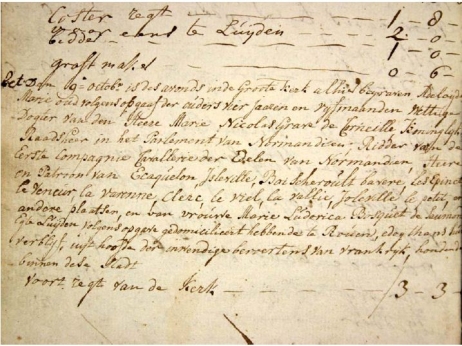 Coster regt — — 1 - 8 -
Ridder eens te Luyden — 2 - 0 -
— 1 - 0 -
graft maken 0 6
Den 9 octobr is des avonds in de Groote kerk alhier begraven Adelayde
Marie oud volgens opgaef der ouders vier jaaren en vyf maanden wettige
Dogter van den Heere Marie Nicolas Grare de Corneille Koninglyk
Raadsheer in het Parlement van Normandien, Ridder van de
Eerste Compagnie Cavallerie der Edelen van Normandien, Heere
en Patroon van Ecaquelon Joleville, Boscheroult Lavere les Epinets
le Veneur la Varenne, Clere, le viel, la vallée, Joleville le petit, en
andere plaatsen, en van vrouwe Marie Luderica Bosquet de
Egte Luyden volgens opgave gedomicilieert hebbende te Roüen, edog thans hun
verblyf uyt hoofde der inwendige beroertens van vrankryk, houdende
binnen dese Stadt
Voort. regt van de Kerk — 3 - 3 -